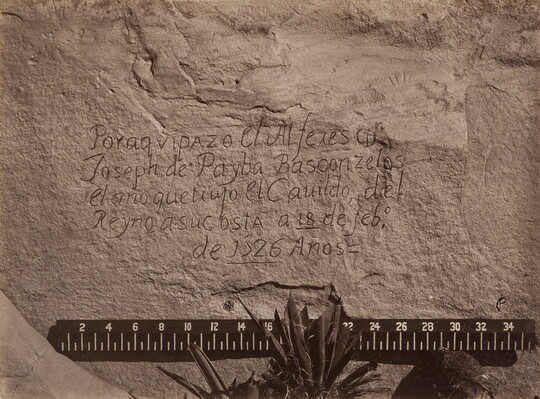 Por aqvi pazo el Alferes Dn
Joseph de Payba Basconzelos
el año que tujo el Cauildo, del
Reyno a su costa a 18 de feb.o
de 1526 Años
2 4 6 8 10 12 14 16 22 24 26 28 30 32 34